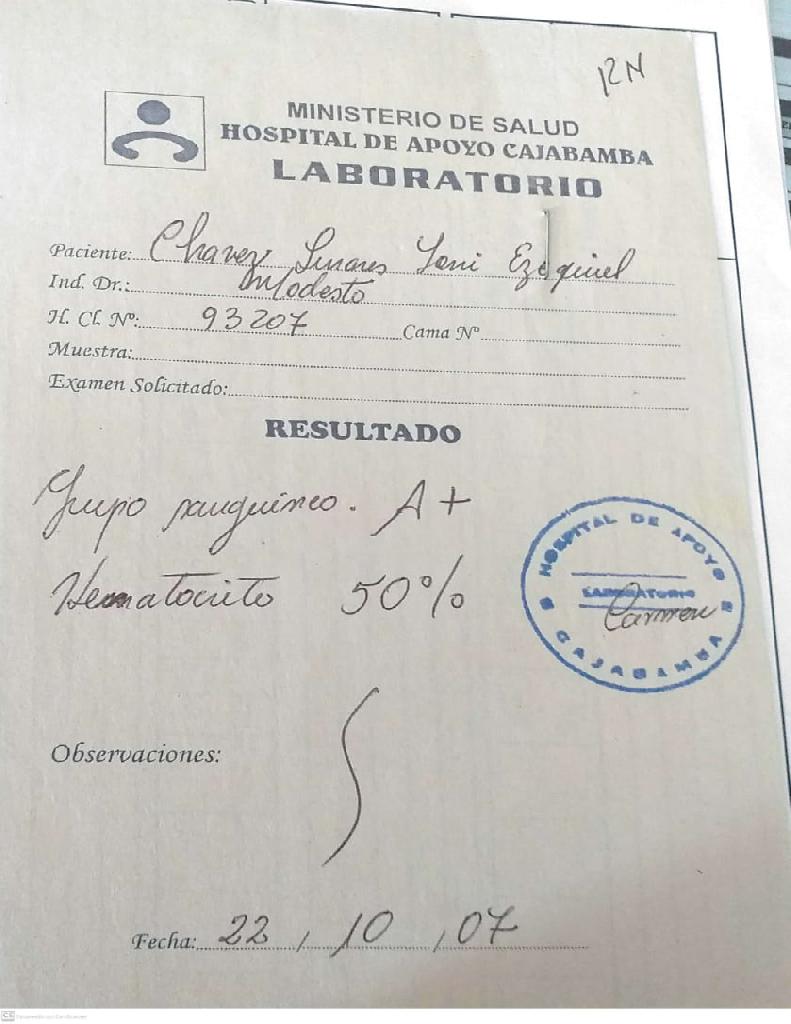 RN
MINISTERIO DE SALUD
HOSPITAL DE APOYO CAJABAMBA
LABORATORIO
Paciente: Chavez Linares Yoni Ezequiel
Ind. Dr.: Modesto
H. Cl. Nº: 93207 Cama Nº
Muestra:
Examen Solicitado:
RESULTADO
Grupo sanguineo. A+
Hematocrito 50%
HOSPITAL DE APOYO
LABORATORIO
Carmen
CAJABAMBA
Observaciones:
Fecha: 22 / 10 / 07
CS